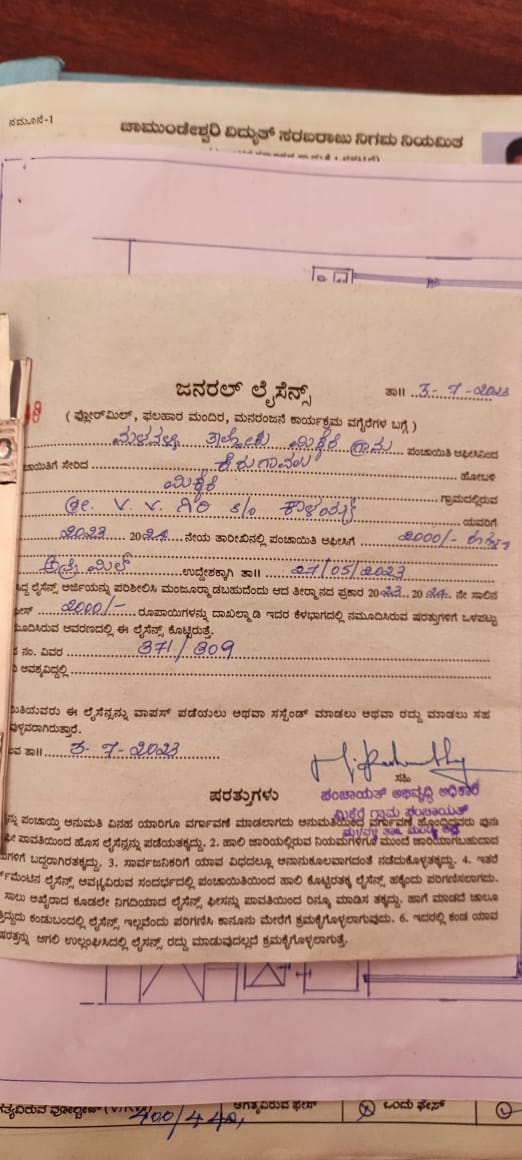 ನಮೂನೆ-1
ಚಾಮುಂಡೇಶ್ವರಿ ವಿದ್ಯುತ್ ಸರಬರಾಜು ನಿಗಮ ನಿಯಮಿತ
ಜನರಲ್ ಲೈಸೆನ್ಸ್
ತಾ॥ 3-7-2023
( ಫ್ಲೋರ್‌ಮಿಲ್, ಫಲಹಾರ ಮಂದಿರ, ಮನರಂಜನೆ ಕಾರ್ಯಕ್ರಮ ವಗೈರೆಗಳ ಬಗ್ಗೆ )
ಮಳವಳ್ಳಿ ತಾಲ್ಲೋಕು ಮಿಕ್ಕೆರೆ ಗ್ರಾಮ ಪಂಚಾಯಿತಿ ಆಫೀಸಿನಿಂದ
ಚಾಯಿತಿಗೆ ಸೇರಿದ ಕಿರುಗಾವಲು ಹೋಬಳಿ
ಮಿಕ್ಕೆರೆ ಗ್ರಾಮದಲ್ಲಿರುವ
V. V. ಗಿರಿ s/o ಕಾಳಯ್ಯ ಯವರಿಗೆ
2023 2024 ನೇಯ ತಾರೀಖಿನಲ್ಲಿ ಪಂಚಾಯಿತಿ ಆಫೀಸಿಗೆ 2000/-
ಮಿಲ್ ಉದ್ದೇಶಕ್ಕಾಗಿ ತಾ॥ 27/05/2023
ಸಿದ್ದ ಲೈಸೆನ್ ಅರ್ಜಿಯನ್ನು ಪರಿಶೀಲಿಸಿ ಮಂಜೂರ್‍ಮಾಡಬಹುದೆಂದು ಆದ ತೀರ್ಮಾನದ ಪ್ರಕಾರ 2023 2024 ನೇ ಸಾಲಿನ
ಫೀಸ್ 2000/- ರೂಪಾಯಿಗಳನ್ನು ದಾಖಲ್ಮಾಡಿ ಇದರ ಕೆಳಭಾಗದಲ್ಲಿ ನಮೂದಿಸಿರುವ ಷರತ್ತುಗಳಿಗೆ ಒಳಪಟ್ಟು
ಮೂದಿಸಿರುವ ಆವರಣದಲ್ಲಿ ಈ ಲೈಸೆನ್ಸ್ ಕೊಟ್ಟಿರುತ್ತೆ.
ನಂ. ವಿವರ 371/309
ಅವಶ್ಯವಿದ್ದಲ್ಲಿ
ಯಿತಿಯವರು ಈ ಲೈಸೆನ್ಸನ್ನು ವಾಪಸ್ ಪಡೆಯಲು ಅಥವಾ ಸಸ್ಪೆಂಡ್ ಮಾಡಲು ಅಥವಾ ರದ್ದು ಮಾಡಲು ಸಹ
ವುಳ್ಳವರಾಗಿರುತ್ತಾರೆ.
ತಾ॥ 3-7-2023
ಸಹಿ
ಪಂಚಾಯತ್ ಅಭಿವೃದ್ಧಿ ಅಧಿಕಾರಿ
ಮಿಕ್ಕೆರೆ ಗ್ರಾಮ ಪಂಚಾಯತ್
ಷರತ್ತುಗಳು
ನ್ನು ಪಂಚಾಯ್ತಿ ಅನುಮತಿ ವಿನಹ ಯಾರಿಗೂ ವರ್ಗಾವಣೆ ಮಾಡಲಾಗದು ಅನುಮತಿಯಿಂದ ವರ್ಗಾವಣೆ ಹೊಂದಿದ್ದವರು ಪುನಃ
ಫೀ ಪಾವತಿಯಿಂದ ಹೊಸ ಲೈಸೆನ್ಸನ್ನು ಪಡೆಯತಕ್ಕದ್ದು. 2. ಹಾಲಿ ಜಾರಿಯಲ್ಲಿರುವ ನಿಯಮಗಳಿಗೂ ಮುಂದೆ ಜಾರಿಯಾಗಬಹುದಾದ
ಮಗಳಿಗೆ ಬದ್ಧರಾಗಿರತಕ್ಕದ್ದು. 3. ಸಾರ್ವಜನಿಕರಿಗೆ ಯಾವ ವಿಧದಲ್ಲೂ ಅನಾನುಕೂಲವಾಗದಂತೆ ನಡೆದುಕೊಳ್ಳತಕ್ಕದ್ದು. 4. ಇತರೆ
ರ್ನಮೆಂಟಿನ ಲೈಸೆನ್ಸ್ ಅವಶ್ಯವಿರುವ ಸಂದರ್ಭದಲ್ಲಿ ಪಂಚಾಯಿತಿಯಿಂದ ಹಾಲಿ ಕೊಟ್ಟಿರತಕ್ಕ ಲೈಸೆನ್ಸ್ ಹಕ್ಕೆಂದು ಪರಿಗಣಿಸಲಾಗದು.
ಸಾಲು ಅಖೈರಾದ ಕೂಡಲೇ ನಿಗದಿಯಾದ ಲೈಸೆನ್ಸ್ ಫೀಸನ್ನು ಪಾವತಿಯಿಂದ ರಿನ್ಯೂ ಮಾಡಿಸ ತಕ್ಕದ್ದು. ಹಾಗೆ ಮಾಡದೆ ಚಾಲೂ
ತ್ತಿದ್ದುದು ಕಂಡುಬಂದಲ್ಲಿ ಲೈಸೆನ್ಸ್ ಇಲ್ಲವೆಂದು ಪರಿಗಣಿಸಿ ಕಾನೂನು ಮೇರೆಗೆ ಕ್ರಮಕೈಗೊಳ್ಳಲಾಗುವುದು. 6. ಇದರಲ್ಲಿ ಕಂಡ ಯಾವ
ಷರತ್ತನ್ನು ಆಗಲಿ ಉಲ್ಲಂಘಿಸಿದಲ್ಲಿ ಲೈಸನ್ಸ್ ರದ್ದು ಮಾಡುವುದಲ್ಲದೆ ಕ್ರಮಕೈಗೊಳ್ಳಲಾಗುತ್ತೆ.
ಗತ್ಯವಿರುವ ವೋಲ್ಟೇಜ್ 400/440, ಅಗತ್ಯವಿರುವ ಫೇಸ್ ಒಂದು ಫೇಸ್